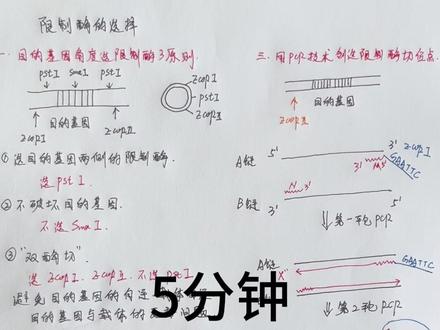 限制酶的选择
一. 目的基因角度选限制酶3原则.
pstI SmaI pstI
EcoRI
pstI
EcoRII
EcoRI EcoRII
目的基因
① 选目的基因两侧的限制酶.
选 pst I.
② 不破坏目的基因.
不选 Sma I.
③ "双酶切"
选 EcoRI、EcoRII, 不选 pst I
避免目的基因的自连
目的基因与载体的
5分钟
三. 用PCR技术创造限制酶切位点.
目的基因
EcoRII
3' EcoRI
GAATTC
A链 5' 3'
3' 5'
B链 3' 5'
第一轮PCR
A链
GAATTC
第2轮PCR